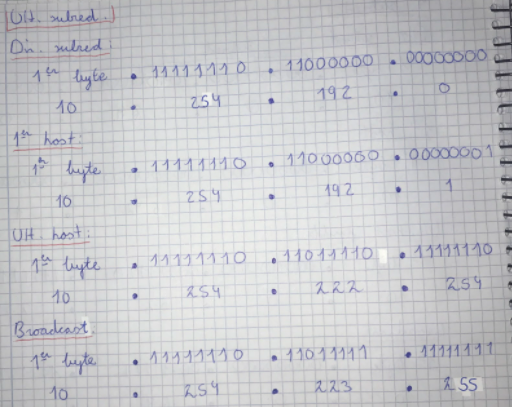 Últ. subred.
Dir. subred:
1er byte . 11111110 . 11000000 . 00000000
10 . 254 . 192 . 0
1er host:
1er byte . 11111110 . 11000000 . 00000001
10 . 254 . 192 . 1
Últ. host:
1er byte . 11111110 . 11011110 . 11111110
10 . 254 . 222 . 254
Broadcast:
1er byte . 11111110 . 11011111 . 11111111
10 . 254 . 223 . 255